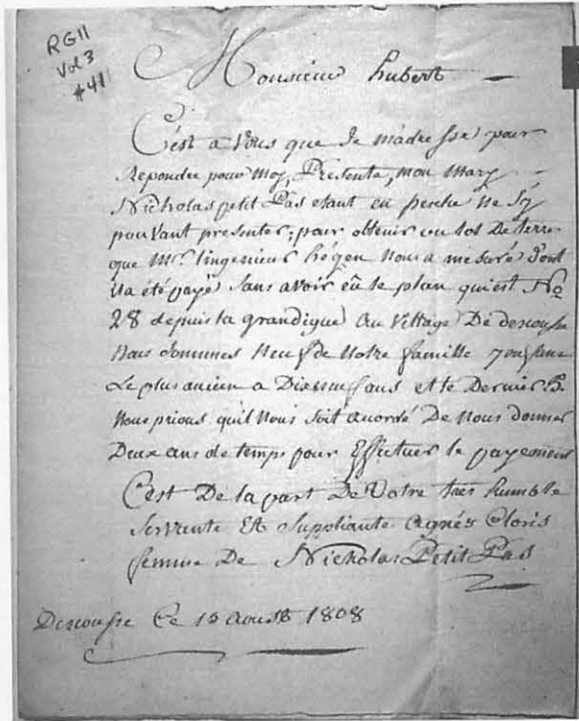 RG11
Vol 3
#41
Monsieur hubert
C'est a Vous que Je m'adresse pour
Repondre pour Moy, Presente, mon Mary
Nicholas petit Pas etant en peche Ne Sÿ
pouvant presenter; pour obtenir un lot De terre
que Mr. lingenieur hégen Nous a mesuré Dont
il a été payé Sans avoir eû le plan qui est No
28 depuis la grandigue au Village De descousse
Nous Sommes Neuf de Notre famille 7 enfans
Le plus ancien a Dixneuf ans et le Dernier 3.
Nous prions quil Nous Soit acordé De Nous donner
Deux ans de temps pour Effectuer le payement
C'est De la part De Votre tres humble
Servante Et Suppliante Agnés Cloris
femme De Nicholas Petit Pas
Descousse Ce 15 aoust 1808